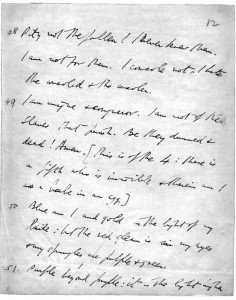 12
48 Pity not the fallen! I never knew them.
I am not for them. I console not: I hate
the consoled & the consoler.
49 I am unique & conqueror. I am not of the
slaves that perish. Be they damned &
dead! Amen. [This is of the 4: there is
a fifth who is invisible & therein am I
as a babe in an egg.]
50 Blue am I and gold in the light of my
bride: but the red gleam is in my eyes
& my spangles are purple & green.
51. Purple beyond purple: it is the light higher